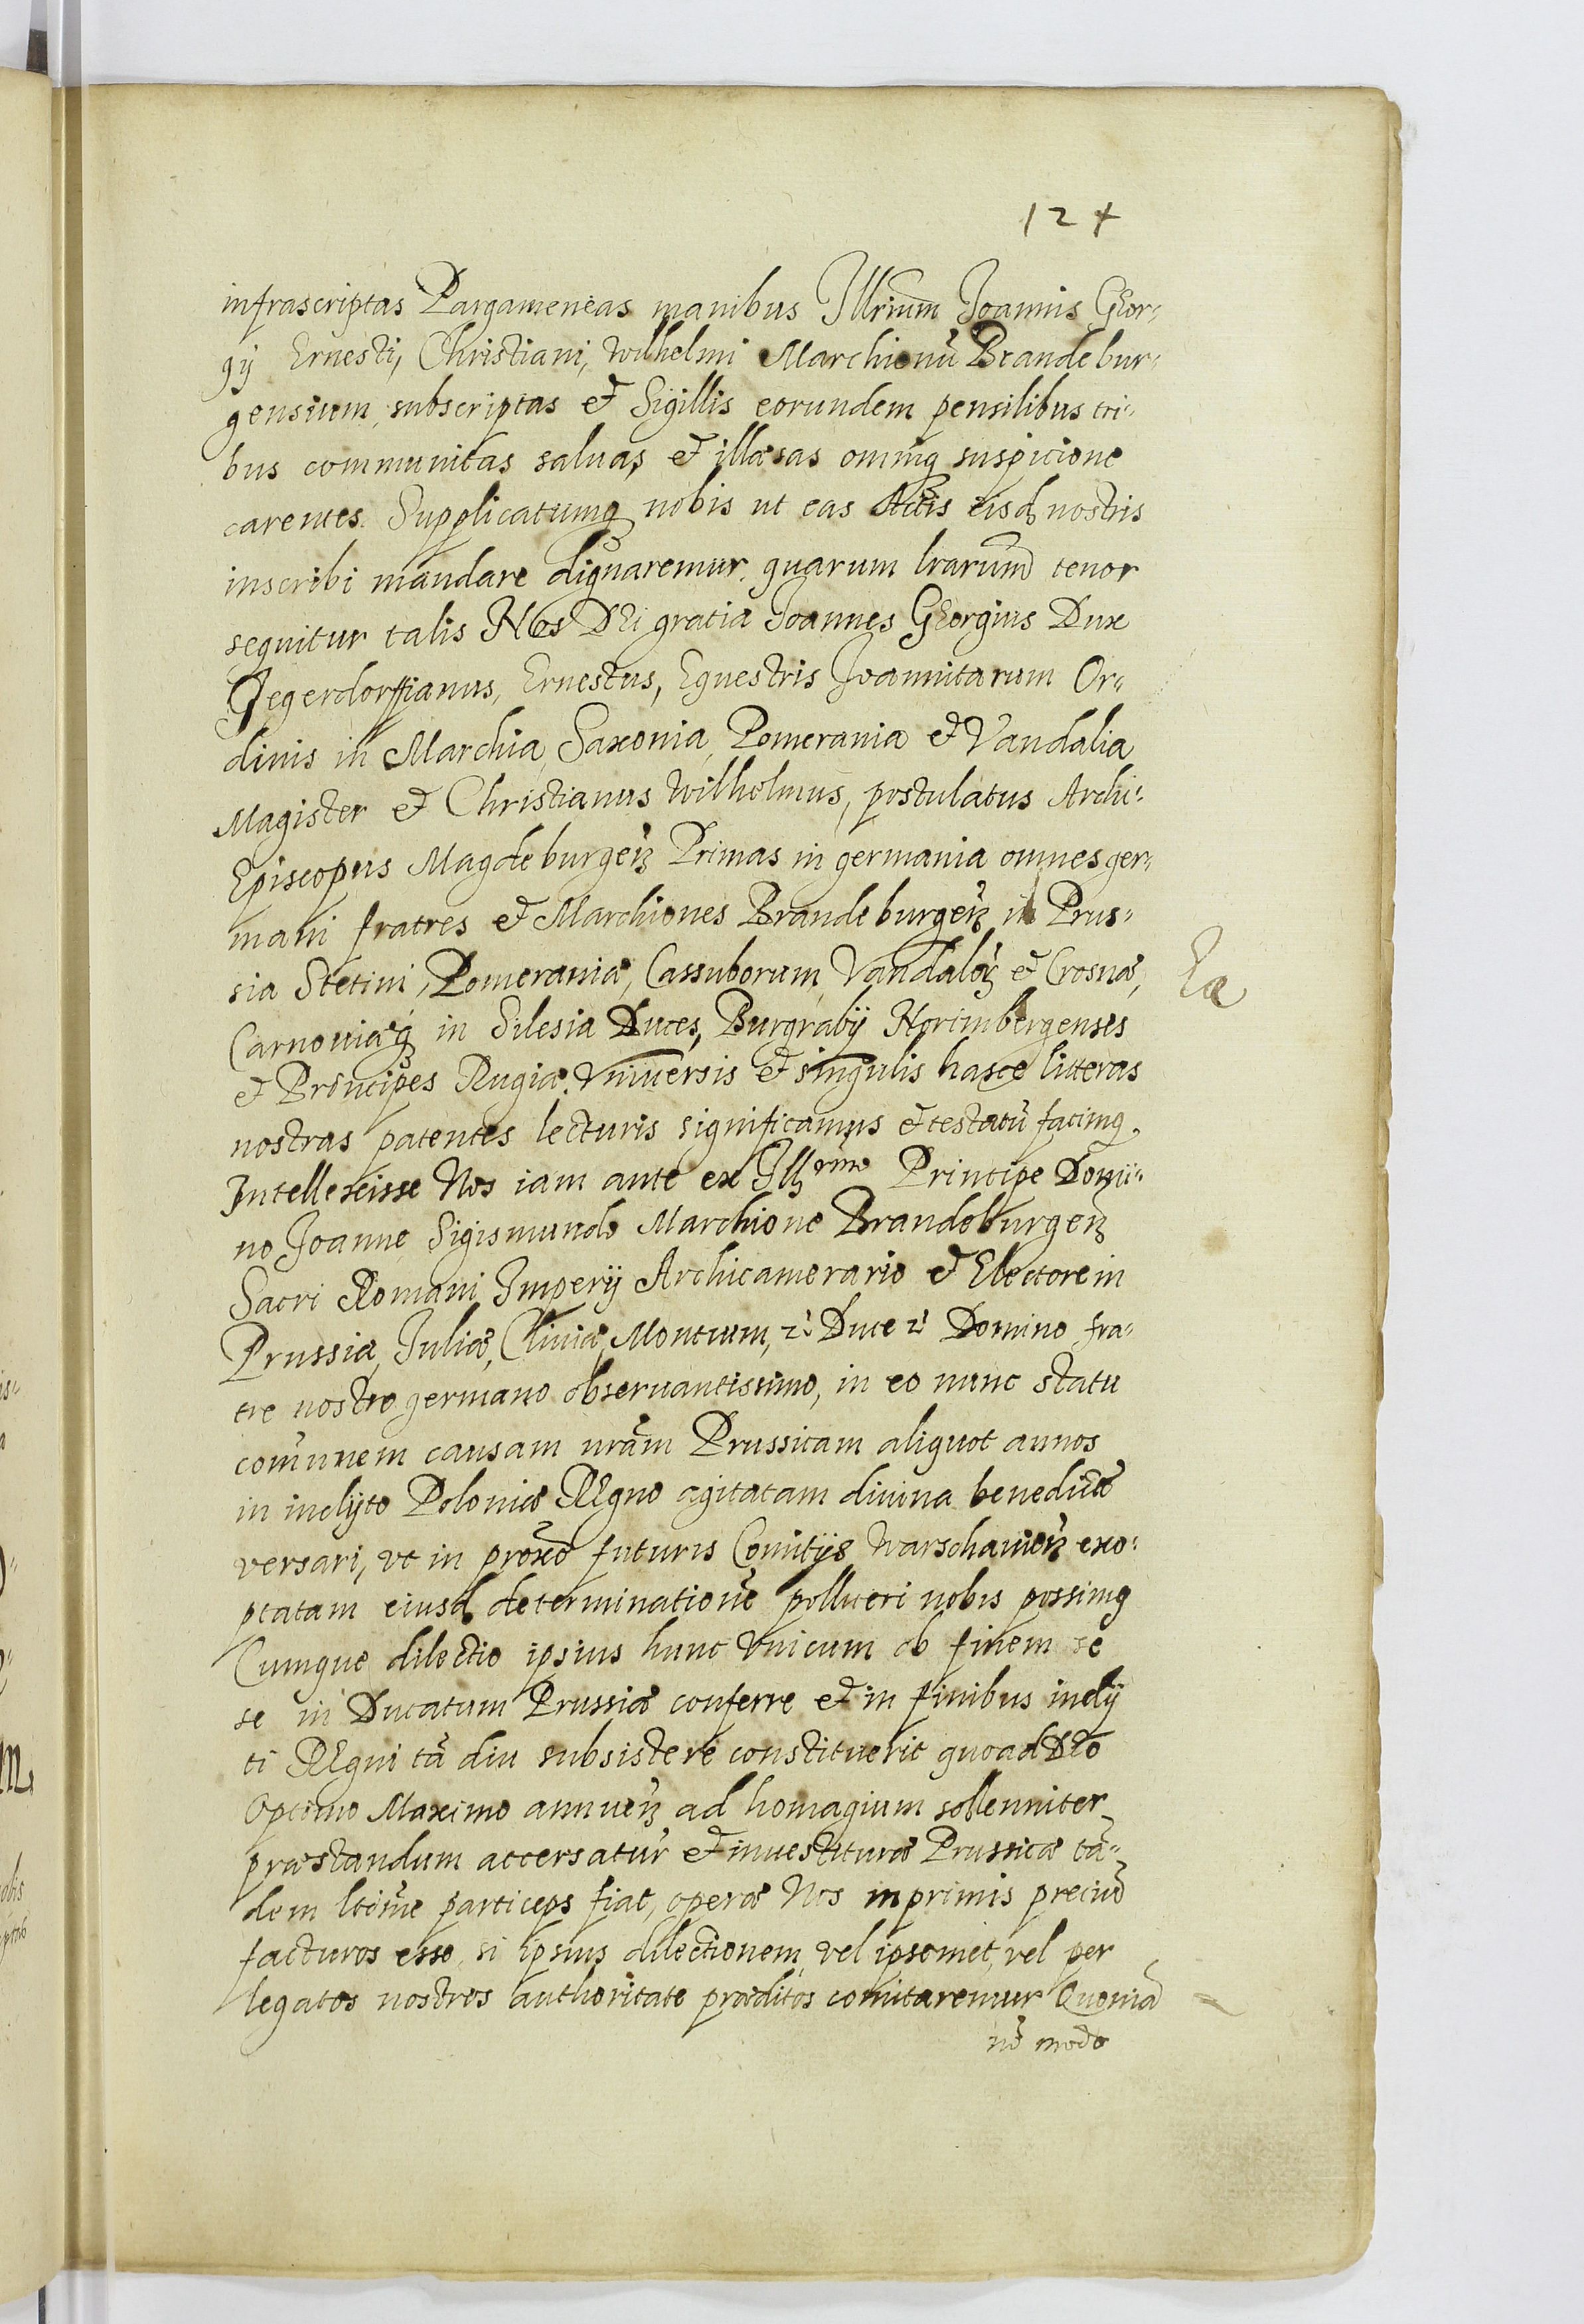 124
infrascriptas Pargameneas manibus Illrium Joannis Geor-
gij Ernesti, Christiani, Wilhelmi Marchionũ Brandebur-
gensium, subscriptas et Sigillis eorundem pensilibus tri-
bus communitas saluas et illæsas omniq suspicione
carentes. Supplicatumq nobis ut eas Actis eisd nostris
inscribi mandare dignaremur. quarum lrarum tenor
sequitur talis Nos Dei gratia Joannes Georgius Dux
Jegerdorffianus, Ernestus, Equestris Joannitarum Or-
dinis in Marchia, Saxonia, Pomerania et Vandalia
Magister et Christianus Wilhelmus, postulatus Archi-
Episcopus Magdeburgen̄ Primas in germania omnes ger-
mani fratres et Marchiones Brandeburgen̄ in Prus-
sia Stetini, Pomeraniæ, Cassuborum, Vandalor̄ et Crosnæ,
Carnouiæq in Silesia Duces, Burgrabij Norimbergenses
et Principes Rugiæ. Vniuersis et singulis hasce litteras
nostras patentes lecturis significamus et testatũ facimq.
Intellexisse Nos iam ante ex Illrmo Principe Domi-
no Joanne Sigismundo Marchione Brandeburgen̄
Sacri Romani Imperij Archicamerario et Electore in
Prussia, Juliæ, Cliuiæ, Montium, z Duce z Domino fra-
tre nostro germano obseruantissimo, in eo nunc statu
com̃unem causam nr̃am Prussicam aliquot annos
in inclyto Poloniæ Regno agitatam diuina benedicõe
versari, vt in prox̃o futuris Comitijs Warschauien̄ exo-
ptatam eiusd determinationẽ polluceri nobis possimq
Cumque dilectio ipsius hunc vnicum ob finem se
se in Ducatum Prussiæ conferre et in finibus incly
ti Regni tã diu subsistere constituerit quoad Deo
Optimo Maximo annuen̄ ad homagium sollenniter
præstandum accersatur et inuestituræ Prussicæ tã-
dem ltim̃e particeps fiat, operæ Nos inprimis preciũ
facturos esse, si ipsius dilectionem, vel ipsemet, vel per
legatos nostros authoritate præditos comitaremur Quoniã
nõ modo